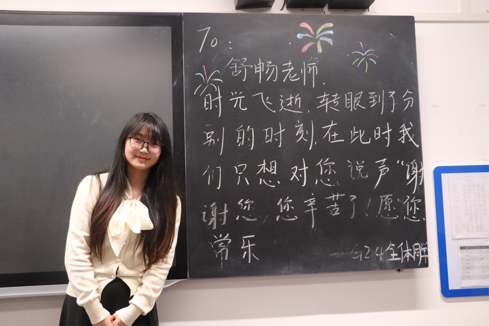 To:
舒畅老师.
时光飞逝,转眼到了分
别的时刻,在此时我
们只想对您说声"谢
谢您,您辛苦了!愿您,
常乐
全体